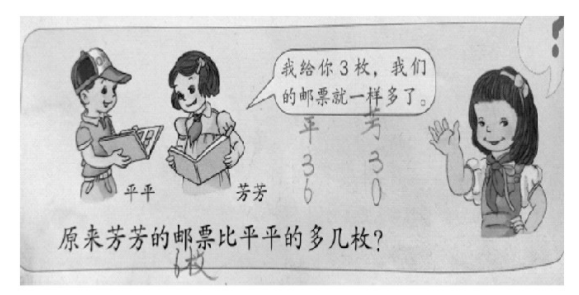 我给你3枚，我们
的邮票就一样多了。
平 芳
3 3
6 0
平平 芳芳
原来芳芳的邮票比平平的多几枚？
6枚
?